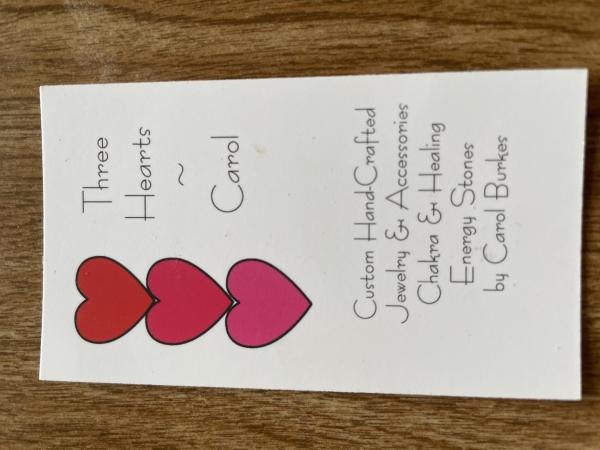 Three
Hearts
~
Carol
Custom Hand-Crafted
Jewelry & Accessories
Chakra & Healing
Energy Stones
by Carol Burkes